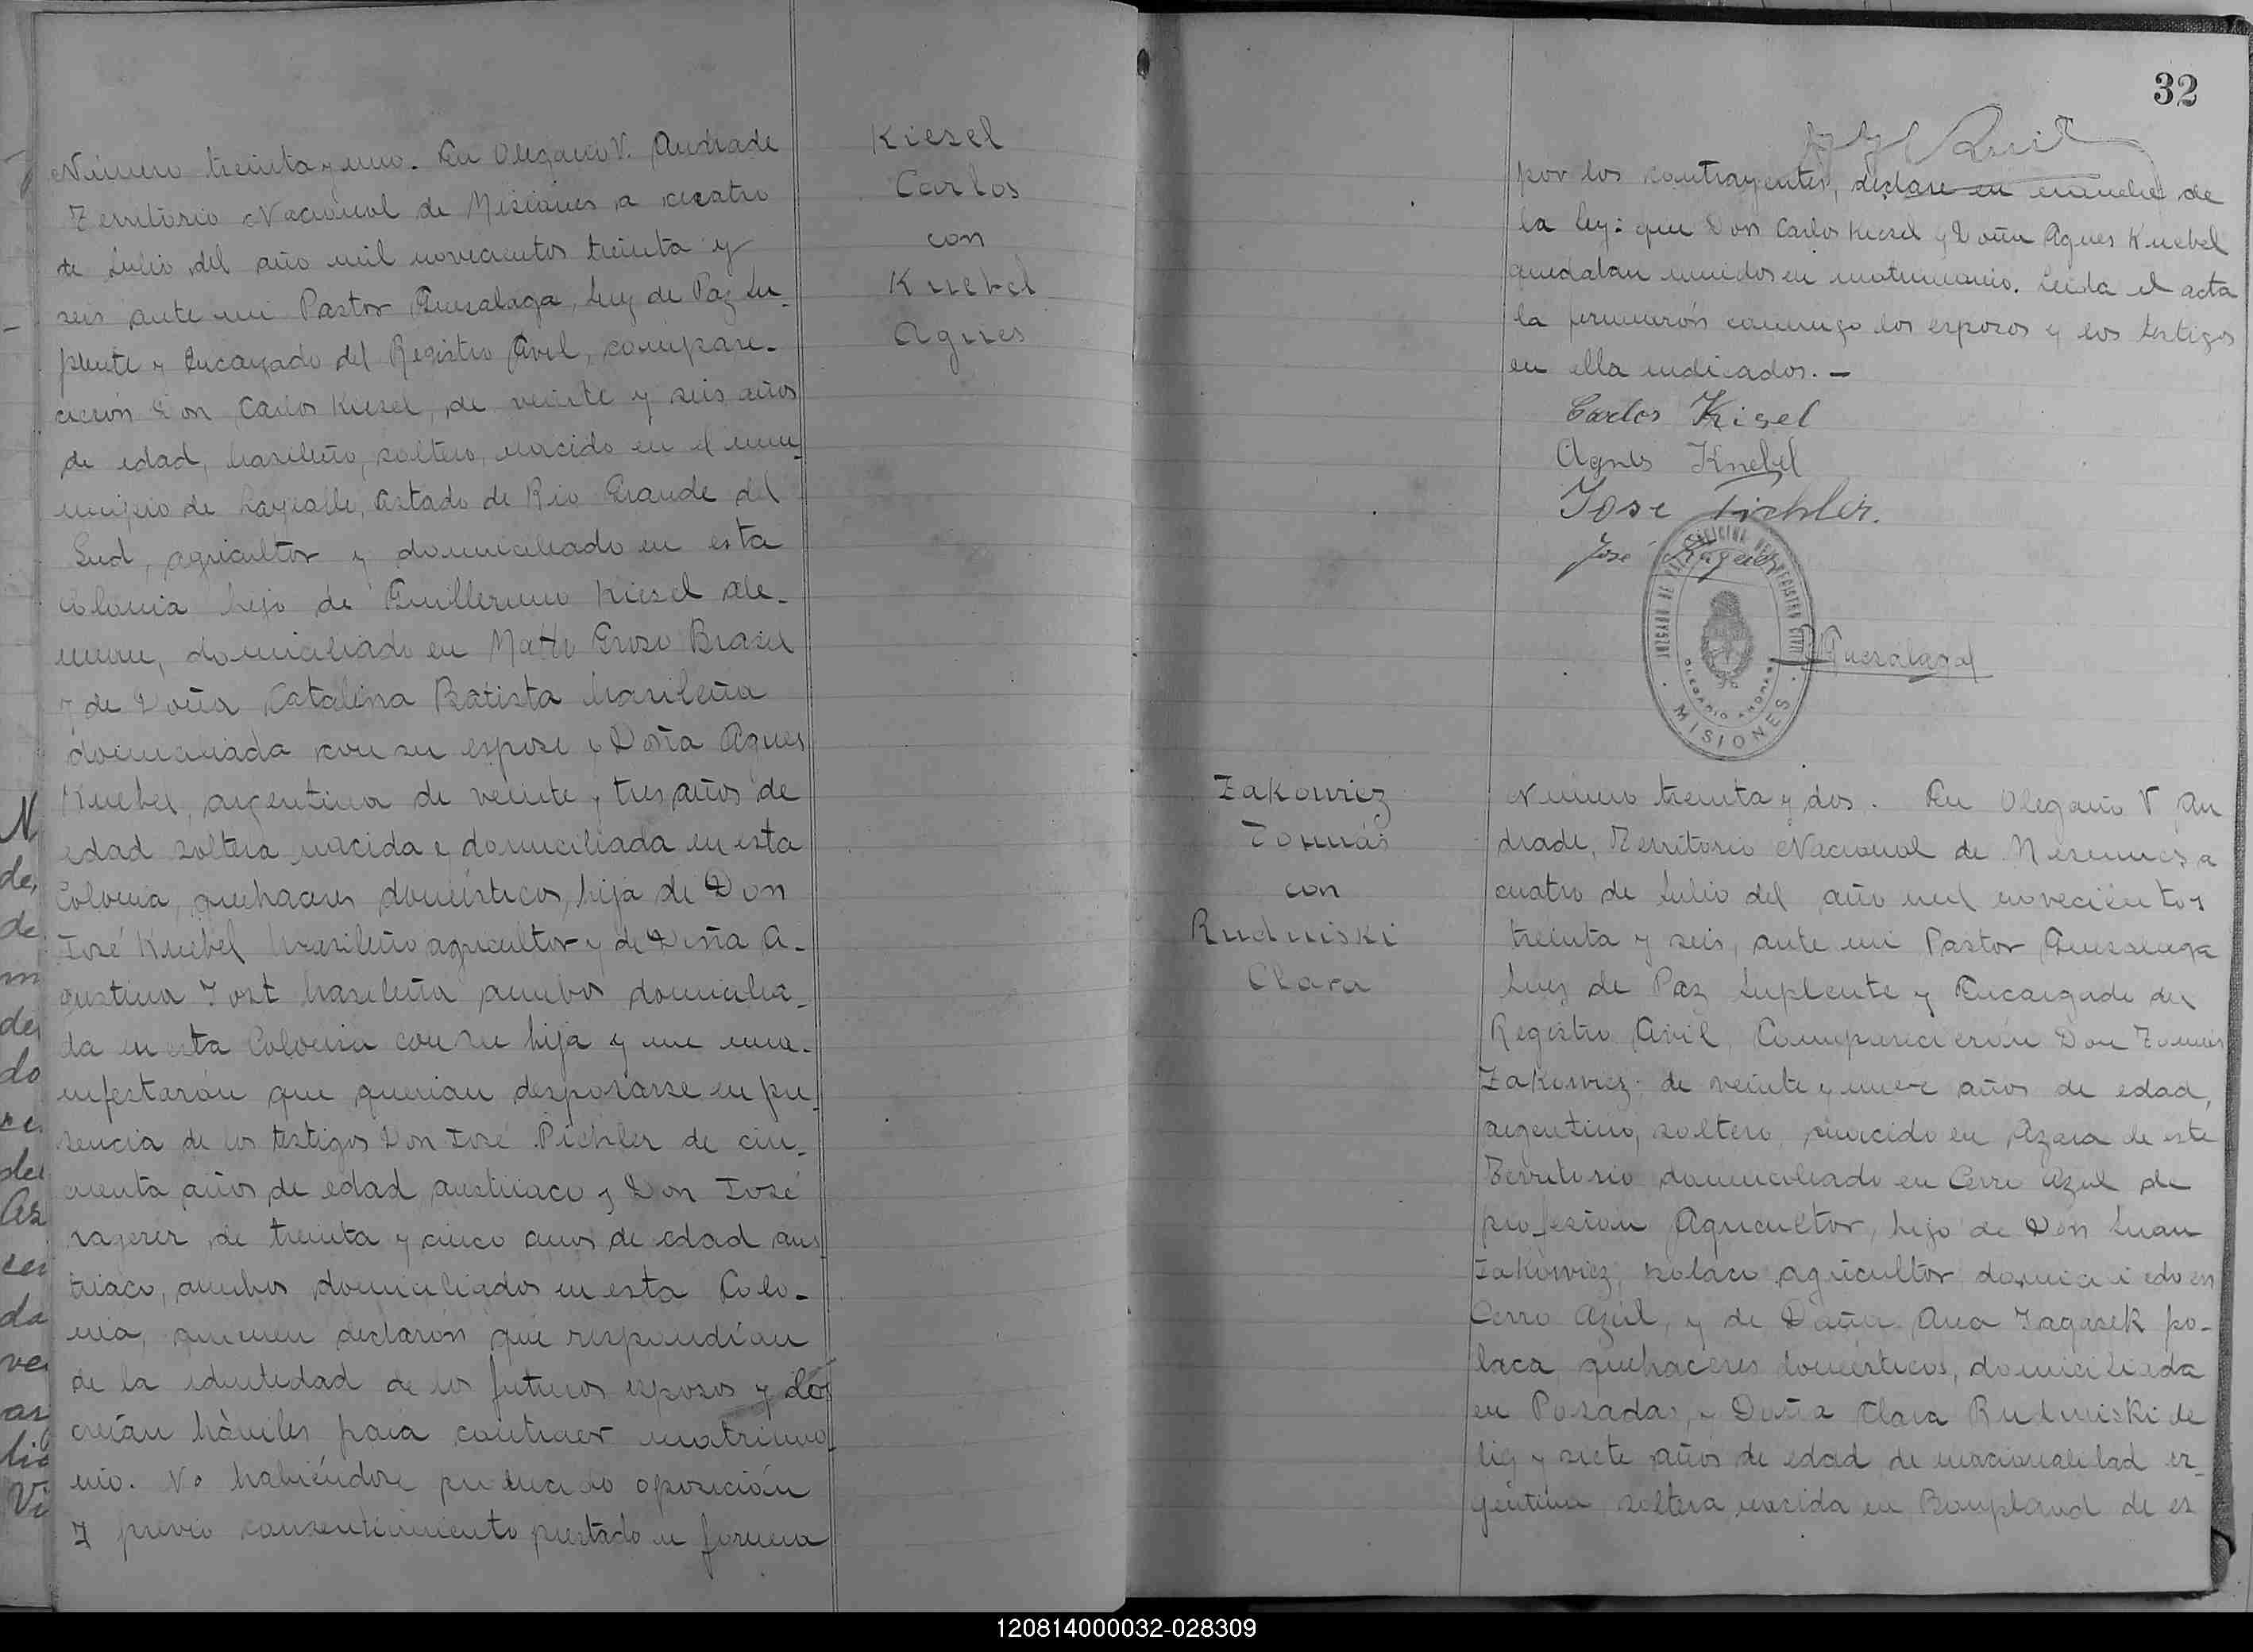 Número treinta y uno. En Olegario V. Andrade
Territorio Nacional de Misiones a cuatro
de Julio del año mil novecientos treinta y
seis ante mi Pastor Quesalaga, Juez de Paz Su-
plente y Encargado del Registro Civil, compare-
cieron Don Carlos Kiesel, de veinte y seis años
de edad, brasileño, soltero, nacido en el mu
nicipio de Estado de Rio Grande del
Sud, agricultor y domiciliado en esta
colonia hijo de Guillermo Kiesel ale-
man, domiciliado en Matto Groso Brasil
y de Doña Catalina Batista brasileña
domiciliada con su esposo y Doña Agnes
Knebel, argentina de veinte y tres años de
edad soltera nacida y domiciliada en esta
Colonia, quehaceres domésticos, hija de Don
José Knebel brasileño agricultor y de Doña A-
gustina Jost brasileña ambos domicilia-
da en esta Colonia con su hija y me ma-
nifestarón que querian desposarse en pre-
sencia de los testigos Don José Pichler de cin-
cuenta años de edad austriaco y Don José
de treinta y cinco años de edad aus
triaco, ambos domiciliados en esta Colo-
nia, quienen declarón que respondían
de la identidad de los futuros esposos y los
creían hàbiles para contraer matrimo-
nio. No habiéndose producido oposición
Y previo consentimiento prestado en forma
Kiesel
Carlos
con
Knebel
Agnes
32
por los contrayentes, declare en nombre de
la ley: que Don Carlos Kiesel y Doña Agnes Knebel
quedaban unidos en matrimonio. Leida el acta
la firmarón conmigo los esposos y los testigos
en ella indicados. -
Carlos Kisel
Agnes Knebel
Jose Pichler.
José
REGISTRO CIVIL
MISIONES
Quesalaga
Zakowicz
Tomás
con
Rudniski
Clara
Número treinta y dos. En Olegario V An
drade, Territorio Nacional de Misiones a
cuatro de Julio del año mil novecientos
treinta y seis, ante mi Pastor Quesalaga
Juez de Paz Suplente y Encargado del
Registro Civil, Comparecierón Don Tomás
Zakowicz de veinte y nueve años de edad,
argentino, soltero, nacido en Azara de este
Territorio domiciliado en Cerro Azul de
profesion Agricultor, hijo de Don Juan
Zakowicz, polaco agricultor domiciliado en
Cerro Azul, y de Doña Ana po-
laca quehaceres domésticos, domiciliada
en Posadas, y Doña Clara Rudniski de
diez y siete años de edad de nacionalidad ar-
gentina soltera nacida en Bonpland de es
120814000032-028309